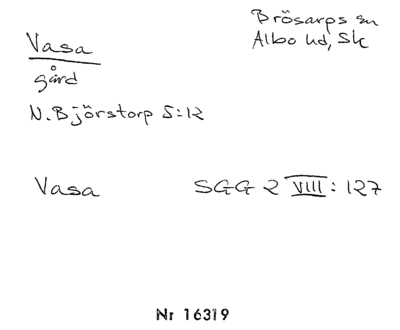 Vasa
gård
N. Björstorp 5:12
Brösarps sn
Albo hd, Sk
Vasa SGG 2 VIII: 127
Nr 16319